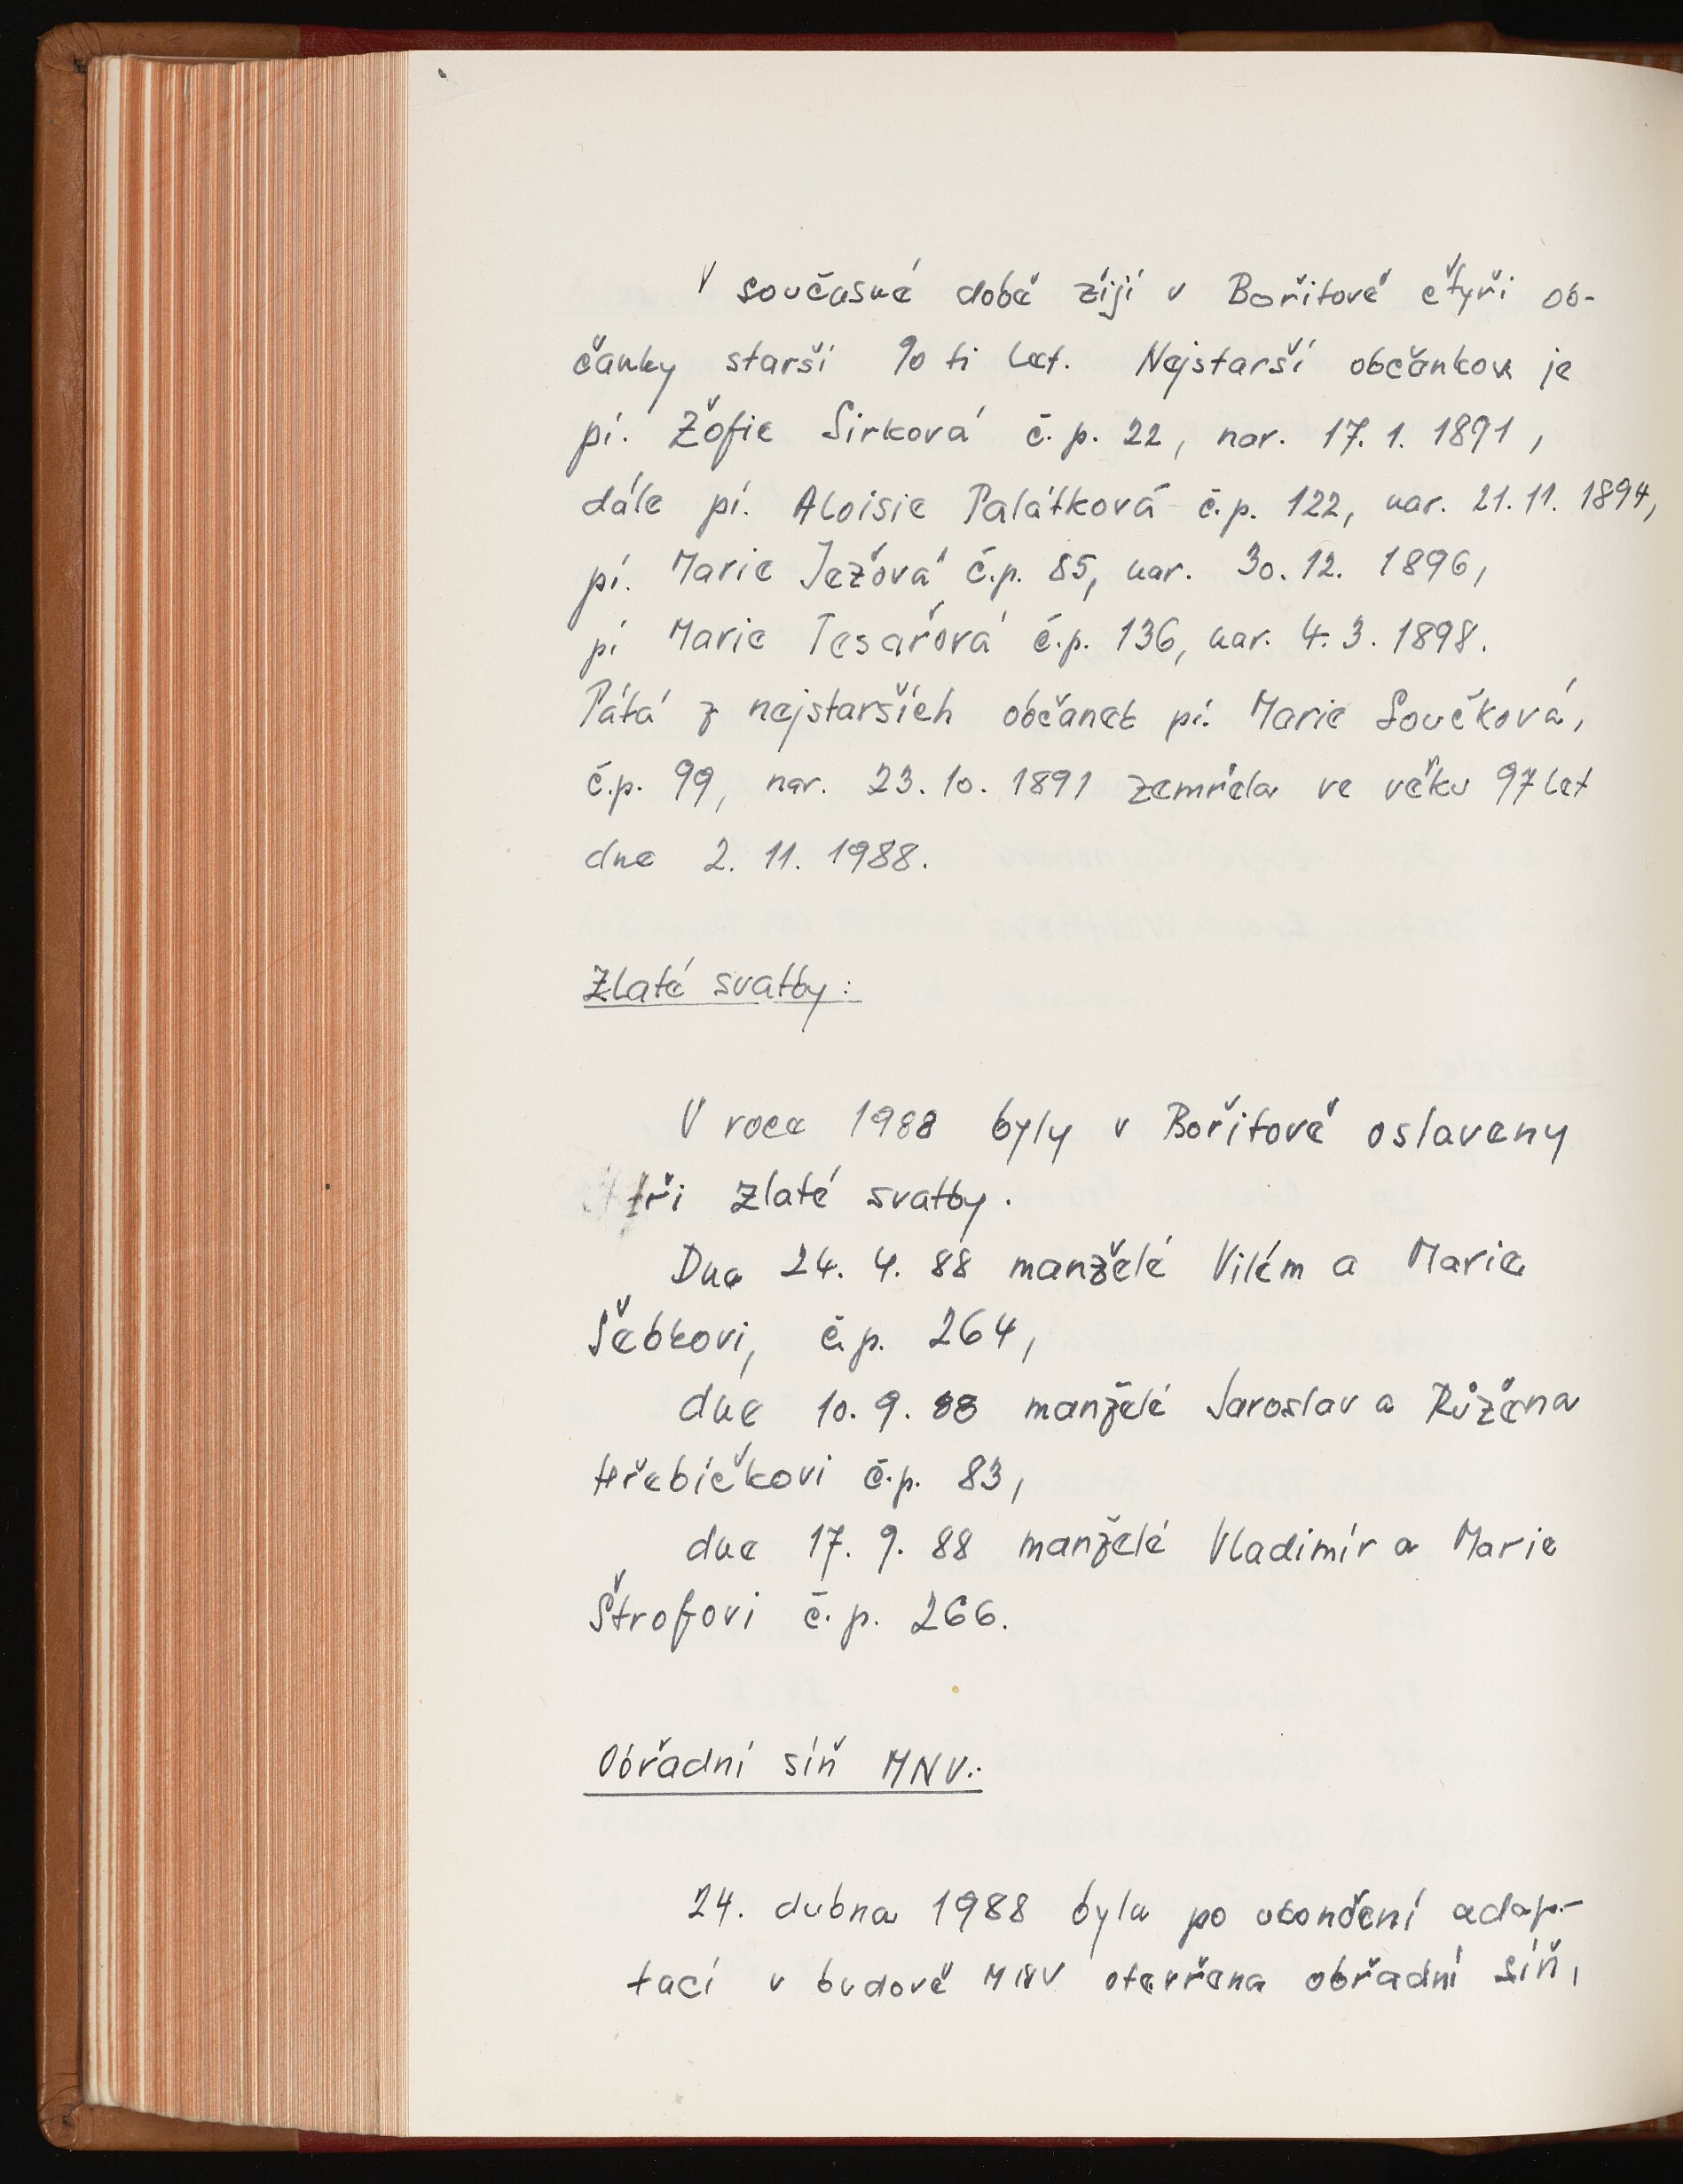 V současné době žijí v Bořitově čtyři ob-
čanky starší 90 ti let. Nejstarší občankou je
pí. Žofie Sirková č.p. 22, nar. 17. 1. 1891,
dále pí. Aloisie Palátková č.p. 122, nar. 21. 11. 1894,
pí. Marie Ježová č.p. 85, nar. 30. 12. 1896,
pí Marie Tesařová č.p. 136, nar. 4. 3. 1898.
Pátá z nejstarších občanek pí. Marie Součková,
č.p. 99, nar. 23. 10. 1891 zemřela ve věku 97 let
dne 2. 11. 1988.
Zlaté svatby:
V roce 1988 byly v Bořitově oslaveny
tři zlaté svatby.
Dne 24. 4. 88 manželé Vilém a Marie
Šebkovi, č.p. 264,
dne 10. 9. 88 manželé Jaroslav a Růžena
Hřebíčkovi č.p. 83,
dne 17. 9. 88 manželé Vladimír a Marie
Štrofovi č.p. 266.
Obřadní síň MNV:
24. dubna 1988 byla po ukončení adap-
tací v budově MNV otevřena obřadní síň,